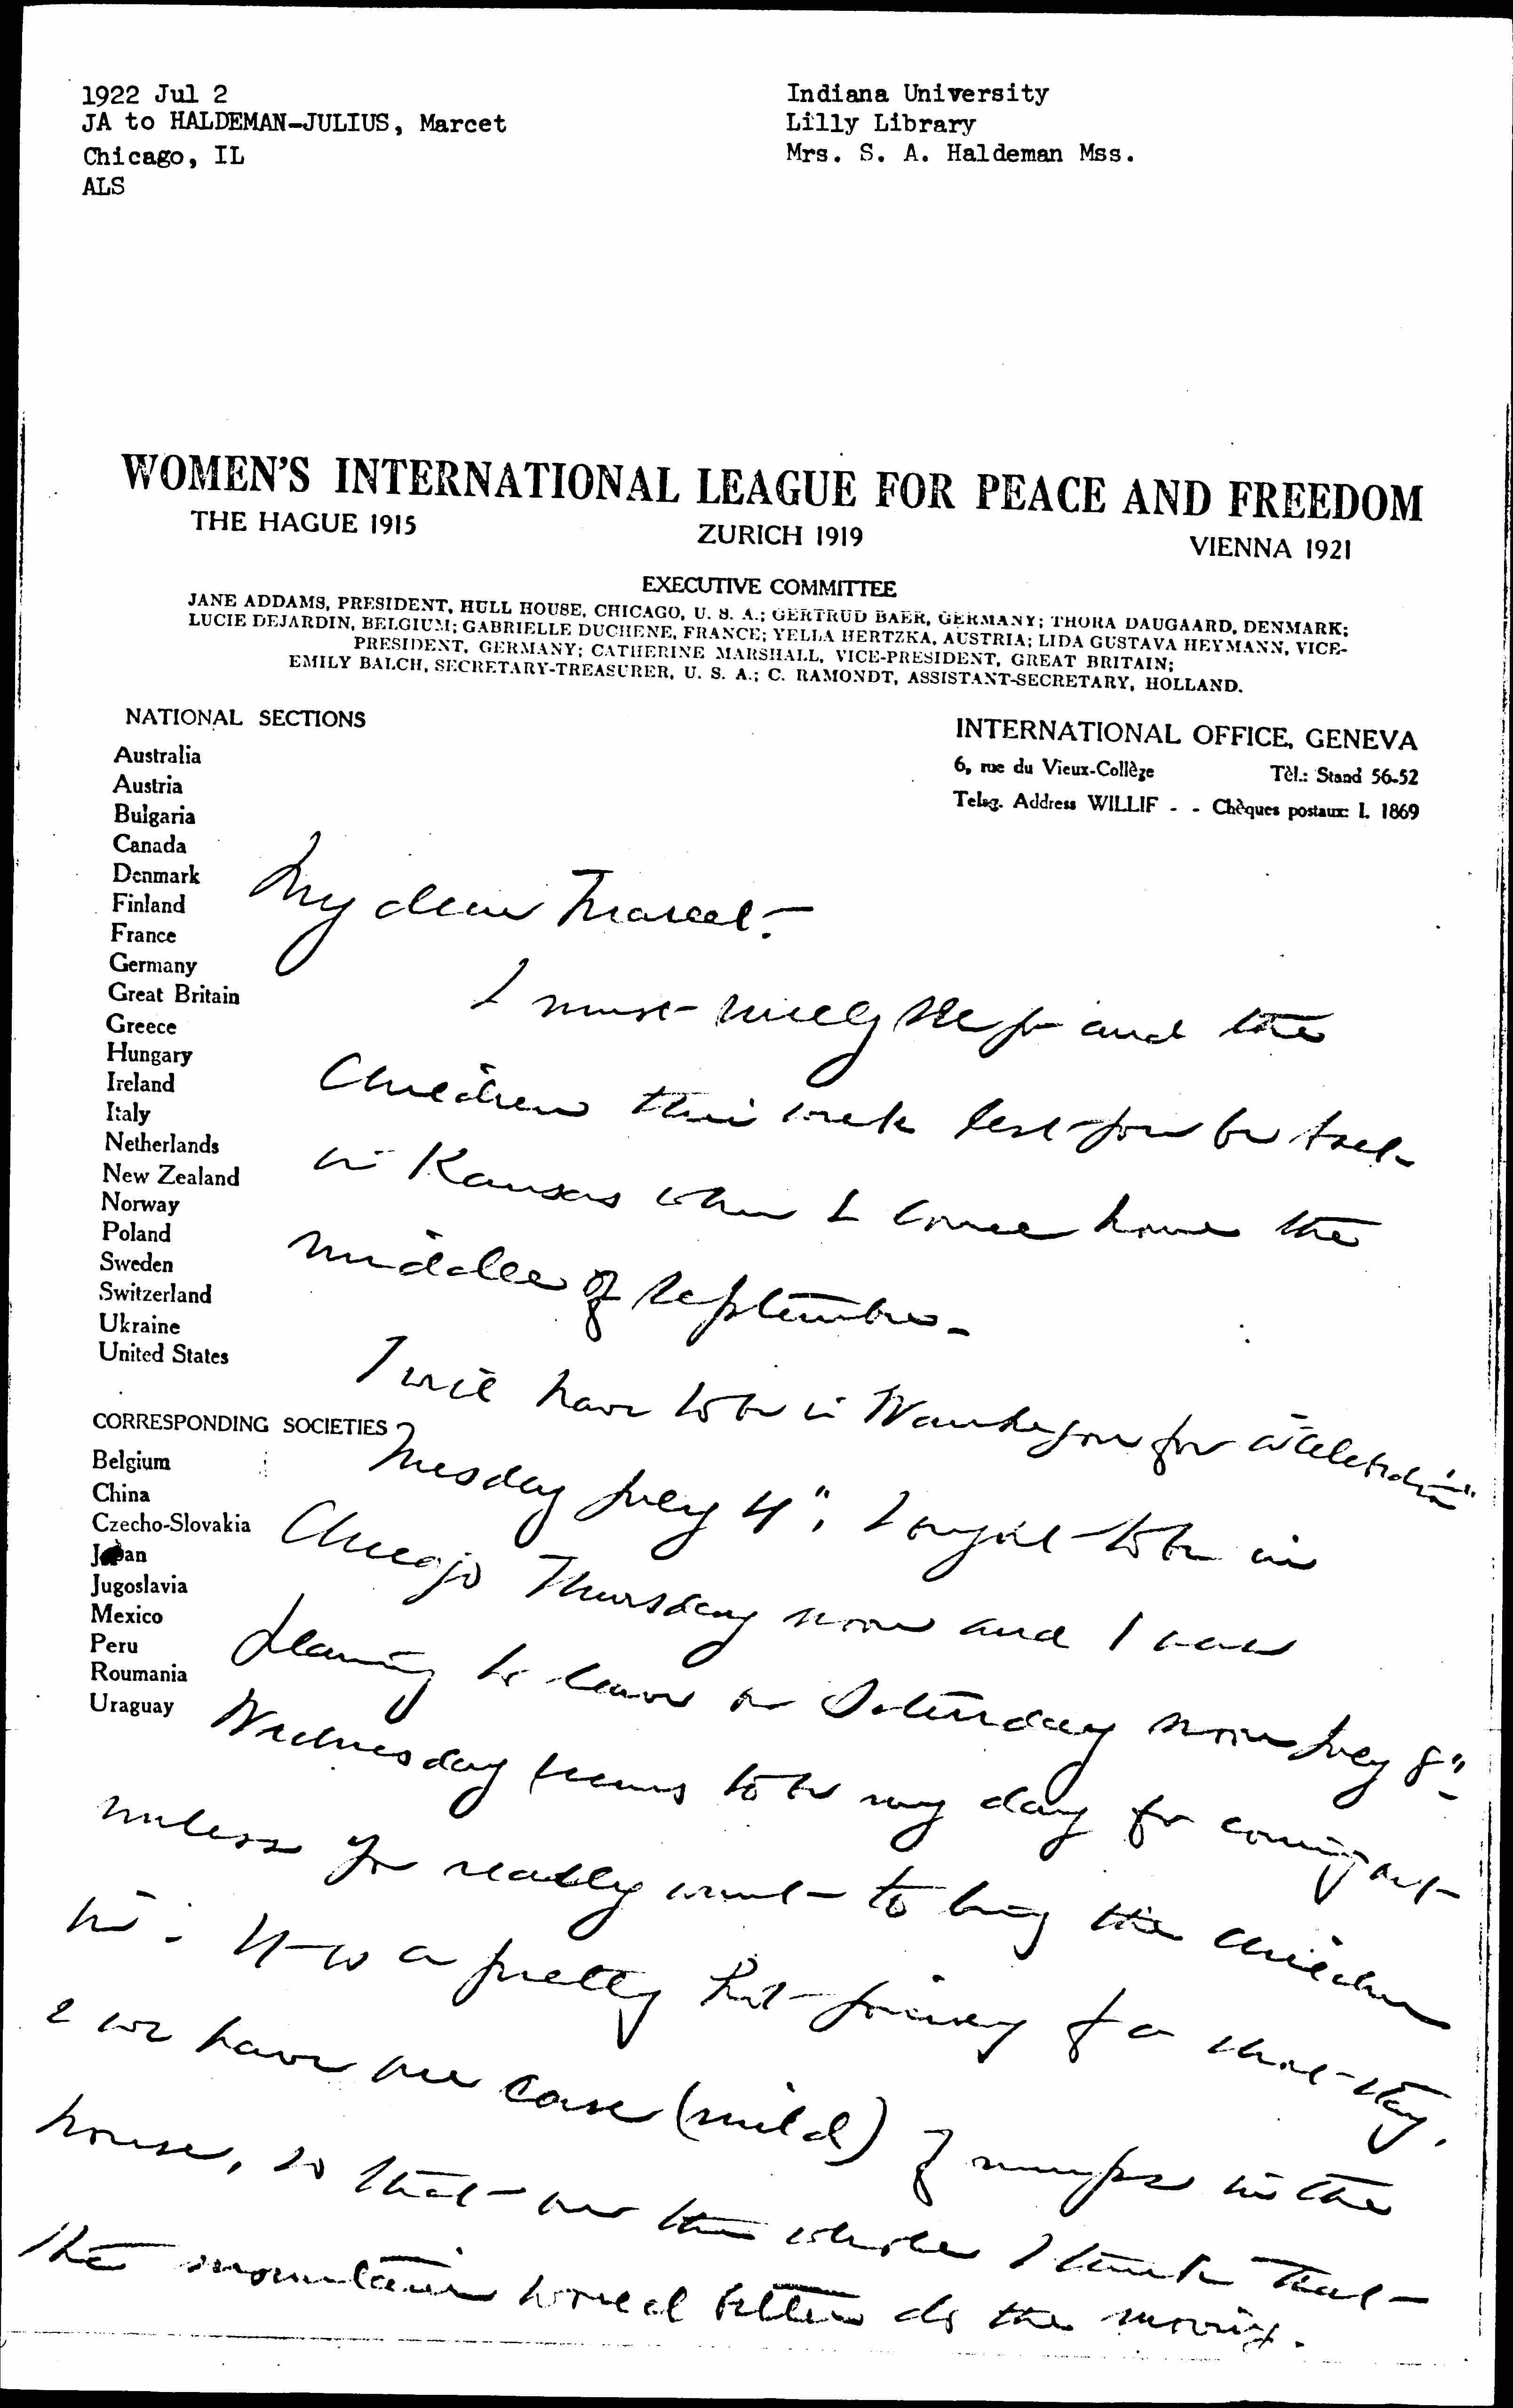 1922 Jul 2
JA to HALDEMAN-JULIUS, Marcet
Chicago, IL
ALS
Indiana University
Lilly Library
Mrs. S. A. Haldeman Mss.
WOMEN'S INTERNATIONAL LEAGUE FOR PEACE AND FREEDOM
THE HAGUE 1915
ZURICH 1919
VIENNA 1921
EXECUTIVE COMMITTEE
JANE ADDAMS, PRESIDENT, HULL HOUSE, CHICAGO, U. S. A.; GERTRUD BAER, GERMANY; THORA DAUGAARD, DENMARK;
LUCIE DEJARDIN, BELGIUM; GABRIELLE DUCHENE, FRANCE; YELLA HERTZKA, AUSTRIA; LIDA GUSTAVA HEYMANN, VICE-
PRESIDENT, GERMANY; CATHERINE MARSHALL, VICE-PRESIDENT, GREAT BRITAIN;
EMILY BALCH, SECRETARY-TREASURER, U. S. A.; C. RAMONDT, ASSISTANT-SECRETARY, HOLLAND.
INTERNATIONAL OFFICE, GENEVA
6, rue du Vieux-Collège Tèl.: Stand 56-52
Teleg. Address WILLIF - - Chèques postaux: I. 1869
NATIONAL SECTIONS
Australia
Austria
Bulgaria
Canada
Denmark
Finland
France
Germany
Great Britain
Greece
Hungary
Ireland
Italy
Netherlands
New Zealand
Norway
Poland
Sweden
Switzerland
Ukraine
United States
CORRESPONDING SOCIETIES
Belgium
China
Czecho-Slovakia
Japan
Jugoslavia
Mexico
Peru
Roumania
Uraguay
My dear Marcet-
I must really see you and the
Children this week lest you be back
in Kansas when I come home the
middle of September-
I will have to be in Waukegan for a "celebration"
Tuesday July 4", I ought to be in
Chicago Thursday noon and I am
planning to leave on Saturday noon July 8"-
Wednesday seems to be my day for coming out
unless you really want to bring the children
in. It is a pretty hot journey for a short stay,
& we have one case (mild) of mumps in the
house, so that on the whole I think that
the mountain would better do the moving.